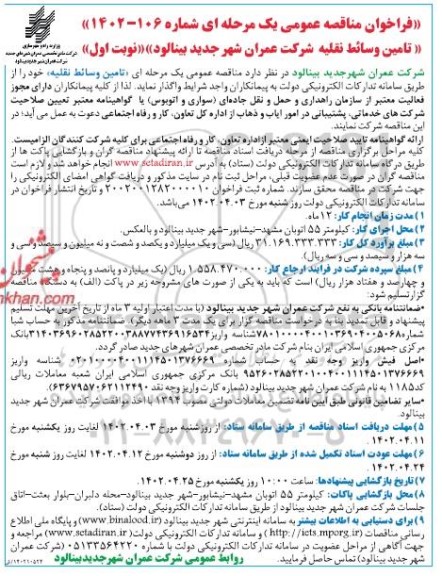 «فراخوان مناقصه عمومی یک مرحله ای شماره ۱۰۶-۱۴۰۲»
« تامین وسائط نقلیه شرکت عمران شهر جدید بینالود»«نوبت اول»
شرکت عمران شهرجدید بینالود در نظر دارد مناقصه عمومی یک مرحله ای «تامین وسائط نقلیه» خود را از
طریق سامانه تدارکات الکترونیکی دولت به پیمانکاران واجد شرایط واگذار نماید. لذا از کلیه پیمانکاران دارای مجوز
فعالیت معتبر از سازمان راهداری و حمل و نقل جاده‌ای (سواری و اتوبوس) یا گواهینامه معتبر تعیین صلاحیت
شرکت های خدماتی، پشتیبانی در امور ایاب و ذهاب از اداره کل تعاون، کار و رفاه اجتماعی دعوت به عمل می آید؛ در
این مناقصه شرکت نمایند.
ارائه گواهینامه تایید صلاحیت ایمنی معتبر از اداره تعاون، کار و رفاه اجتماعی برای کلیه شرکت کنندگان الزامیست.
کلیه مراحل برگزاری مناقصه از مرحله دریافت اسناد مناقصه تا ارائه پیشنهاد مناقصه گران و بازگشایی پاکت ها از
طریق درگاه سامانه تدارکات الکترونیکی دولت (ستاد) به آدرس www.setadiran.ir انجام خواهد شد و لازم است
مناقصه گران در صورت عدم عضویت قبلی، مراحل ثبت نام در سایت مذکور و دریافت گواهی امضای الکترونیکی را
جهت شرکت در مناقصه محقق سازند. شماره ثبت فراخوان و تاریخ انتشار فراخوان در
سامانه تدارکات الکترونیکی دولت روز شنبه مورخ ۱۴۰۲.۰۴.۰۳ می‌باشد.
۱) مدت زمان انجام کار: ۱۲ماه.
۲) محل اجرای کار: کیلومتر ۵۵ اتوبان مشهد-نیشابور-شهر جدید بینالود و بالعکس.
۳) مبلغ برآورد کل کار: ۳۱.۱۶۹.۳۳۳.۳۳۳ ریال (سی و یک میلیارد و یکصد و شصت و نه میلیون و سیصد و سی و
سه هزار و سیصد و سی و سه ریال).
۴) مبلغ سپرده شرکت در فرآیند ارجاع کار: ۱.۵۵۸.۴۷۰.۰۰۰ ریال (یک میلیارد و پانصد و پنجاه و هشت میلیون
و چهارصد و هفتاد هزار ریال) است که باید به یکی از صورت های مشروحه زیر در پاکت (الف) به دستگاه مناقصه
گزار تسلیم شود:
*ضمانتنامه بانکی به نفع شرکت عمران شهر جدید بینالود (با مدت اعتبار اولیه ۳ ماه از تاریخ آخرین مهلت تسلیم
پیشنهاد و قابل تمدید بنا به درخواست مناقصه گزار برای یک مدت ۳ ماهه دیگر). ضمانتنامه مذکور به حساب شبا
شماره
مرکزی جمهوری اسلامی ایران بنام شرکت مادر تخصصی عمران شهر های جدید صادر گردد.
*اصل فیش واریز وجه نقد به حساب شماره شناسه واریز
بانک مرکزی جمهوری اسلامی ایران شعبه معاملات ریالی
کد۱۱۸۵ به نام شرکت عمران شهر جدید بینالود (شماره کارت واریز وجه نقد
*سایر تضامین قانونی طبق آیین نامه تضمین معاملات دولتی مصوب ۱۳۹۴ با اخذ موافقت شرکت عمران شهر جدید
بینالود.
۵) مهلت دریافت اسناد مناقصه از طریق سامانه ستاد: از روز شنبه مورخ ۱۴۰۲.۰۴.۰۳ لغایت روز یکشنبه مورخ
۱۴۰۲.۰۴.۱۱
۶) مهلت عودت اسناد تکمیل شده از طریق سامانه ستاد: از روز دوشنبه مورخ ۱۴۰۲.۰۴.۱۲ لغایت روز شنبه مورخ
۱۴۰۲.۰۴.۲۴
۷) تاریخ بازگشایی پیشنهادها: ساعت ۱۰:۰۰ روز یکشنبه مورخ ۱۴۰۲.۰۴.۲۵
۸) محل بازگشایی پاکات: کیلومتر ۵۵ اتوبان مشهد-نیشابور-شهر جدید بینالود-محله دلبران-بلوار بعثت-اتاق
جلسات شرکت عمران شهر جدید بینالود-سامانه تدارکات الکترونیکی دولت (ستاد)
۹) برای دستیابی به اطلاعات بیشتر به سامانه اینترنتی شهر جدید بینالود (www.binalood.ir) و پایگاه ملی اطلاع
رسانی مناقصات (http://iets.mporg.ir) و سامانه تدارکات الکترونیکی دولت (www.setadiran.ir) مراجعه و
جهت آگاهی از مراحل عضویت در سامانه تدارکات الکترونیکی دولت با شماره ۰۵۱۳۳۵۶۴۲۲۰ تماس حاصل نمائید.
روابط عمومی شرکت عمران شهرجدیدبینالود